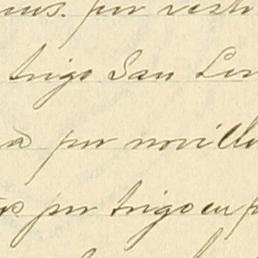 por resto
trigo San Lor
por novillo
por trigo en p